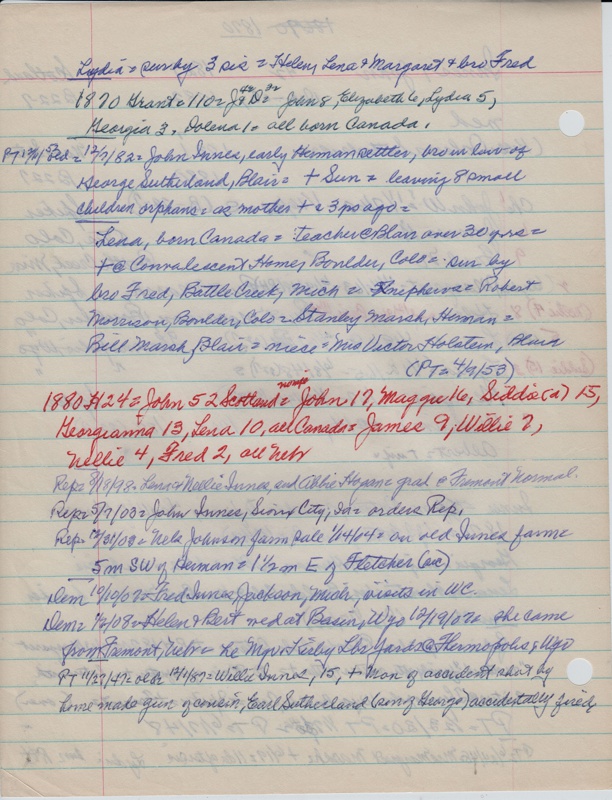 Lydia = surv by 3 sis = Helen, Lena & Margaret & bro Fred
1870 Grant = 110 = J 42 D = 32 John 8, Elizabeth 6, Lydia 5,
Georgia 3, Dolena 1 = all born Canada.
12/7/82 = John Innes, early Herman settler, bro in law of
George Sutherland, Blair = + Sun = leaving 8 small
children orphans = as mother + = 3 yrs ago =
Lena, born Canada = Teacher @ Blair over 30 yrs =
+ @ Convalescent Home, Boulder, Colo = sur by
bro Fred, Battle Creek, Mich = nephews = Robert
Morrison, Boulder, Colo = Stanley Marsh, Herman =
Bill Marsh, Blair = niece = Mrs Victor Holstein, Blair
(PT = 4/9/53)
1880 H24 = John 52 Scotland = no wife John 17, Maggie 16, Siddie (a) 15,
Georgianna 13, Lena 10, all Canada = James 9, Willie 7,
Nellie 4, Fred 2, all Nebr
Rep = Lena & Nellie Innes, and Abbie Hogan = grad @ Fremont Normal.
Rep = 5/7/03 = John Innes, Sioux City, Ia = orders Rep.
Rep = Nels Johnson farm sale 1/4/04 = on old Innes farm =
5 m SW of Herman = 1 1/2 m E of Fletcher (sic)
Dem 10/10/07 = Fred Innes, Jackson, Mich, visits in WC.
Dem = Helen & Bert wed at Basin, Wyo 12/19/07 = she came
from Fremont, Nebr = he Mgr Lbr yards @ Thermopolis, Wyo
PT 11/27/47 = old = 12/1/87 = Willie Innes, 15, + Mon of accident shot by
home made gun of cousin, Earl Sutherland (son of George) accidentally fired,